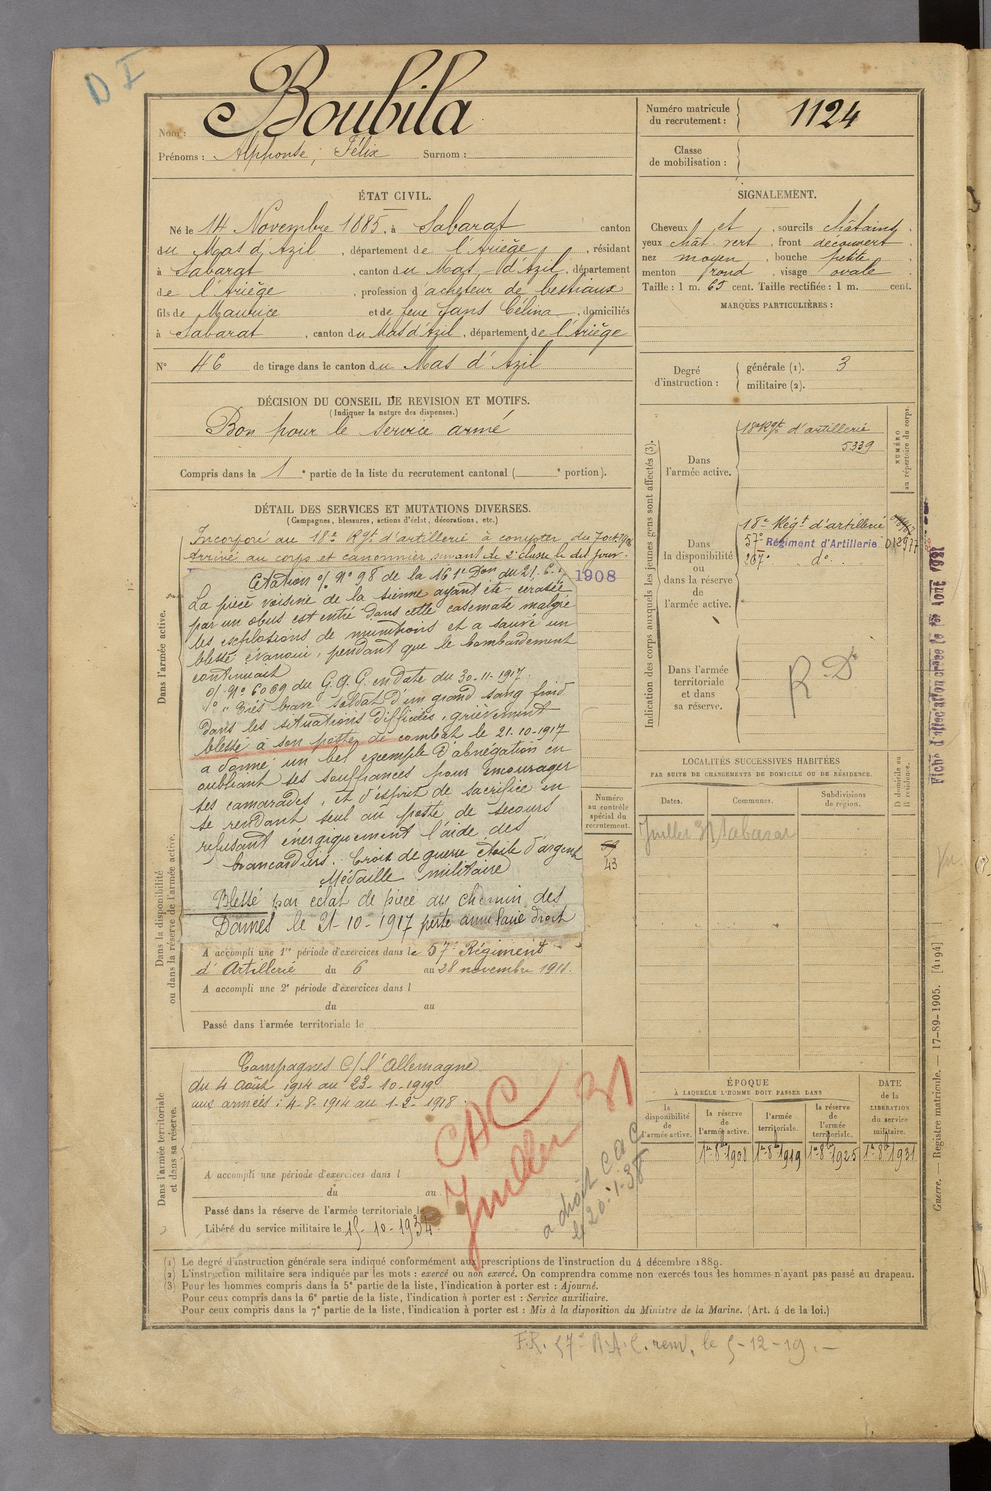 D I
Nom : Boubila
Prénoms : Alphonse, Félix Surnom :
Numéro matricule du recrutement : 1124
Classe de mobilisation :
ÉTAT CIVIL.
Né le 14 Novembre 1885, à Sabarat canton
du Mas d'Azil, département de l'Ariège, résidant
à Sabarat, canton du Mas-d'Azil, département
de l'Ariège, profession d'acheteur de bestiaux
fils de Maurice et de feue Jans Célina, domiciliés
à Sabarat, canton du Mas d'Azil, département de l'Ariège
N° 46 de tirage dans le canton du Mas d'Azil
SIGNALEMENT.
Cheveux et, sourcils châtains
yeux chât. vert, front découvert
nez moyen, bouche petite
menton rond, visage ovale
Taille : 1 m. 65 cent. Taille rectifiée : 1 m. cent.
MARQUES PARTICULIÈRES :
Degré d'instruction : générale (1). 3
militaire (2).
DÉCISION DU CONSEIL DE REVISION ET MOTIFS.
(Indiquer la nature des dispenses.)
Bon pour le service armé
Compris dans la 1e partie de la liste du recrutement cantonal ( e portion).
DÉTAIL DES SERVICES ET MUTATIONS DIVERSES.
(Campagnes, blessures, actions d'éclat, décorations, etc.)
Dans l'armée active.
Incorporé au 18e Rgt d'artillerie à compter du 7 oct.
Arrivé au corps et canonnier servant de 2e classe le dit jour.
1908
Citation o/ N° 98 de la 161e Don du 21.6.
La pièce voisine de la sienne ayant été écrasée
par un obus est entré dans cette casemate malgré
les explosions de munitions et a sauvé un
blessé évanoui, pendant que le bombardement
continuait
o/ N° 6069 du G.Q.G. en date du 30-11-1917
Très brave soldat d'un grand sang froid
dans les situations difficiles, grièvement
blessé à son poste de combat le 21.10-1917
a donné un bel exemple d'abnégation en
oubliant ses souffrances pour encourager
ses camarades, et d'esprit de sacrifice en
se rendant seul au poste de secours
refusant énergiquement l'aide des
brancardiers. Croix de guerre étoile d'argent
Médaille militaire
Blessé par éclat de pièce au chemin des
Dames le 21-10-1917 perte
Dans la disponibilité ou dans la réserve de l'armée active.
Numéro au contrôle spécial du recrutement.
43
A accompli une 1re période d'exercices dans le 57e Régiment
d'Artillerie du 6 au 28 novembre 1911.
A accompli une 2e période d'exercices dans l
du au
Passé dans l'armée territoriale le
Dans l'armée territoriale et dans sa réserve.
Campagnes C/ l'Allemagne
du 4 Août 1914 au 23-10-1919
aux armées : 4-8-1914 au 1-2-1918.
CAC
Juillet 31
a droit C a C
le 20-1-38
A accompli une période d'exercices dans l
du au
Passé dans la réserve de l'armée territoriale le
Libéré du service militaire le 15-10-1934
Indication des corps auxquels les jeunes gens sont affectés (3).
NUMÉRO au répertoire du corps.
Dans l'armée active.
18e Rgt d'artillerie
5339
Dans la disponibilité ou dans la réserve de l'armée active.
18e Régt d'artillerie
57e Régiment d'Artillerie 012977
267e do
Dans l'armée territoriale et dans sa réserve.
R. D
LOCALITÉS SUCCESSIVES HABITÉES
PAR SUITE DE CHANGEMENTS DE DOMICILE OU DE RÉSIDENCE.
D domicile ou R résidence.
Dates. Communes. Subdivisions de région.
Juillet 31 Sabarat
ÉPOQUE
À LAQUELLE L'HOMME DOIT PASSER DANS
DATE de la LIBÉRATION du service militaire.
la disponibilité de l'armée active.
la réserve de l'armée active.
l'armée territoriale.
la réserve de l'armée territoriale.
1er 8bre 1908 1er 8bre 1919 1er 8bre 1925 1er 8bre 1931
Fiche d'affectation créée le 15 Août 1931
Guerre. — Registre matricule. — 17-89-1905. [4194]
(1) Le degré d'instruction générale sera indiqué conformément aux prescriptions de l'instruction du 4 décembre 1889.
(2) L'instruction militaire sera indiquée par les mots : exercé ou non exercé. On comprendra comme non exercés tous les hommes n'ayant pas passé au drapeau.
(3) Pour les hommes compris dans la 5e partie de la liste, l'indication à porter est : Ajourné.
Pour ceux compris dans la 6e partie de la liste, l'indication à porter est : Service auxiliaire.
Pour ceux compris dans la 7e partie de la liste, l'indication à porter est : Mis à la disposition du Ministre de la Marine. (Art. 4 de la loi.)
F.R. 57e R.A.C. renv. le 5-12-19. —